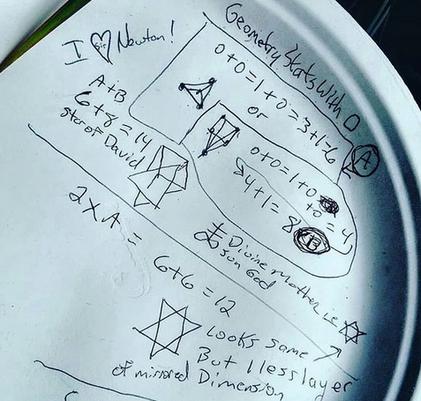 Geometry Starts With 0
I ♡ Sir Newton!
0+0=1+0=3+1=6
or
A
A+B
6+8=14
star of David
0+0=1+0
+0=4
4+1=8 B
Divine Mother i.e.
Son God
2×A=
6+6=12
Looks same
But 1 less layer
of mirrored Dimension